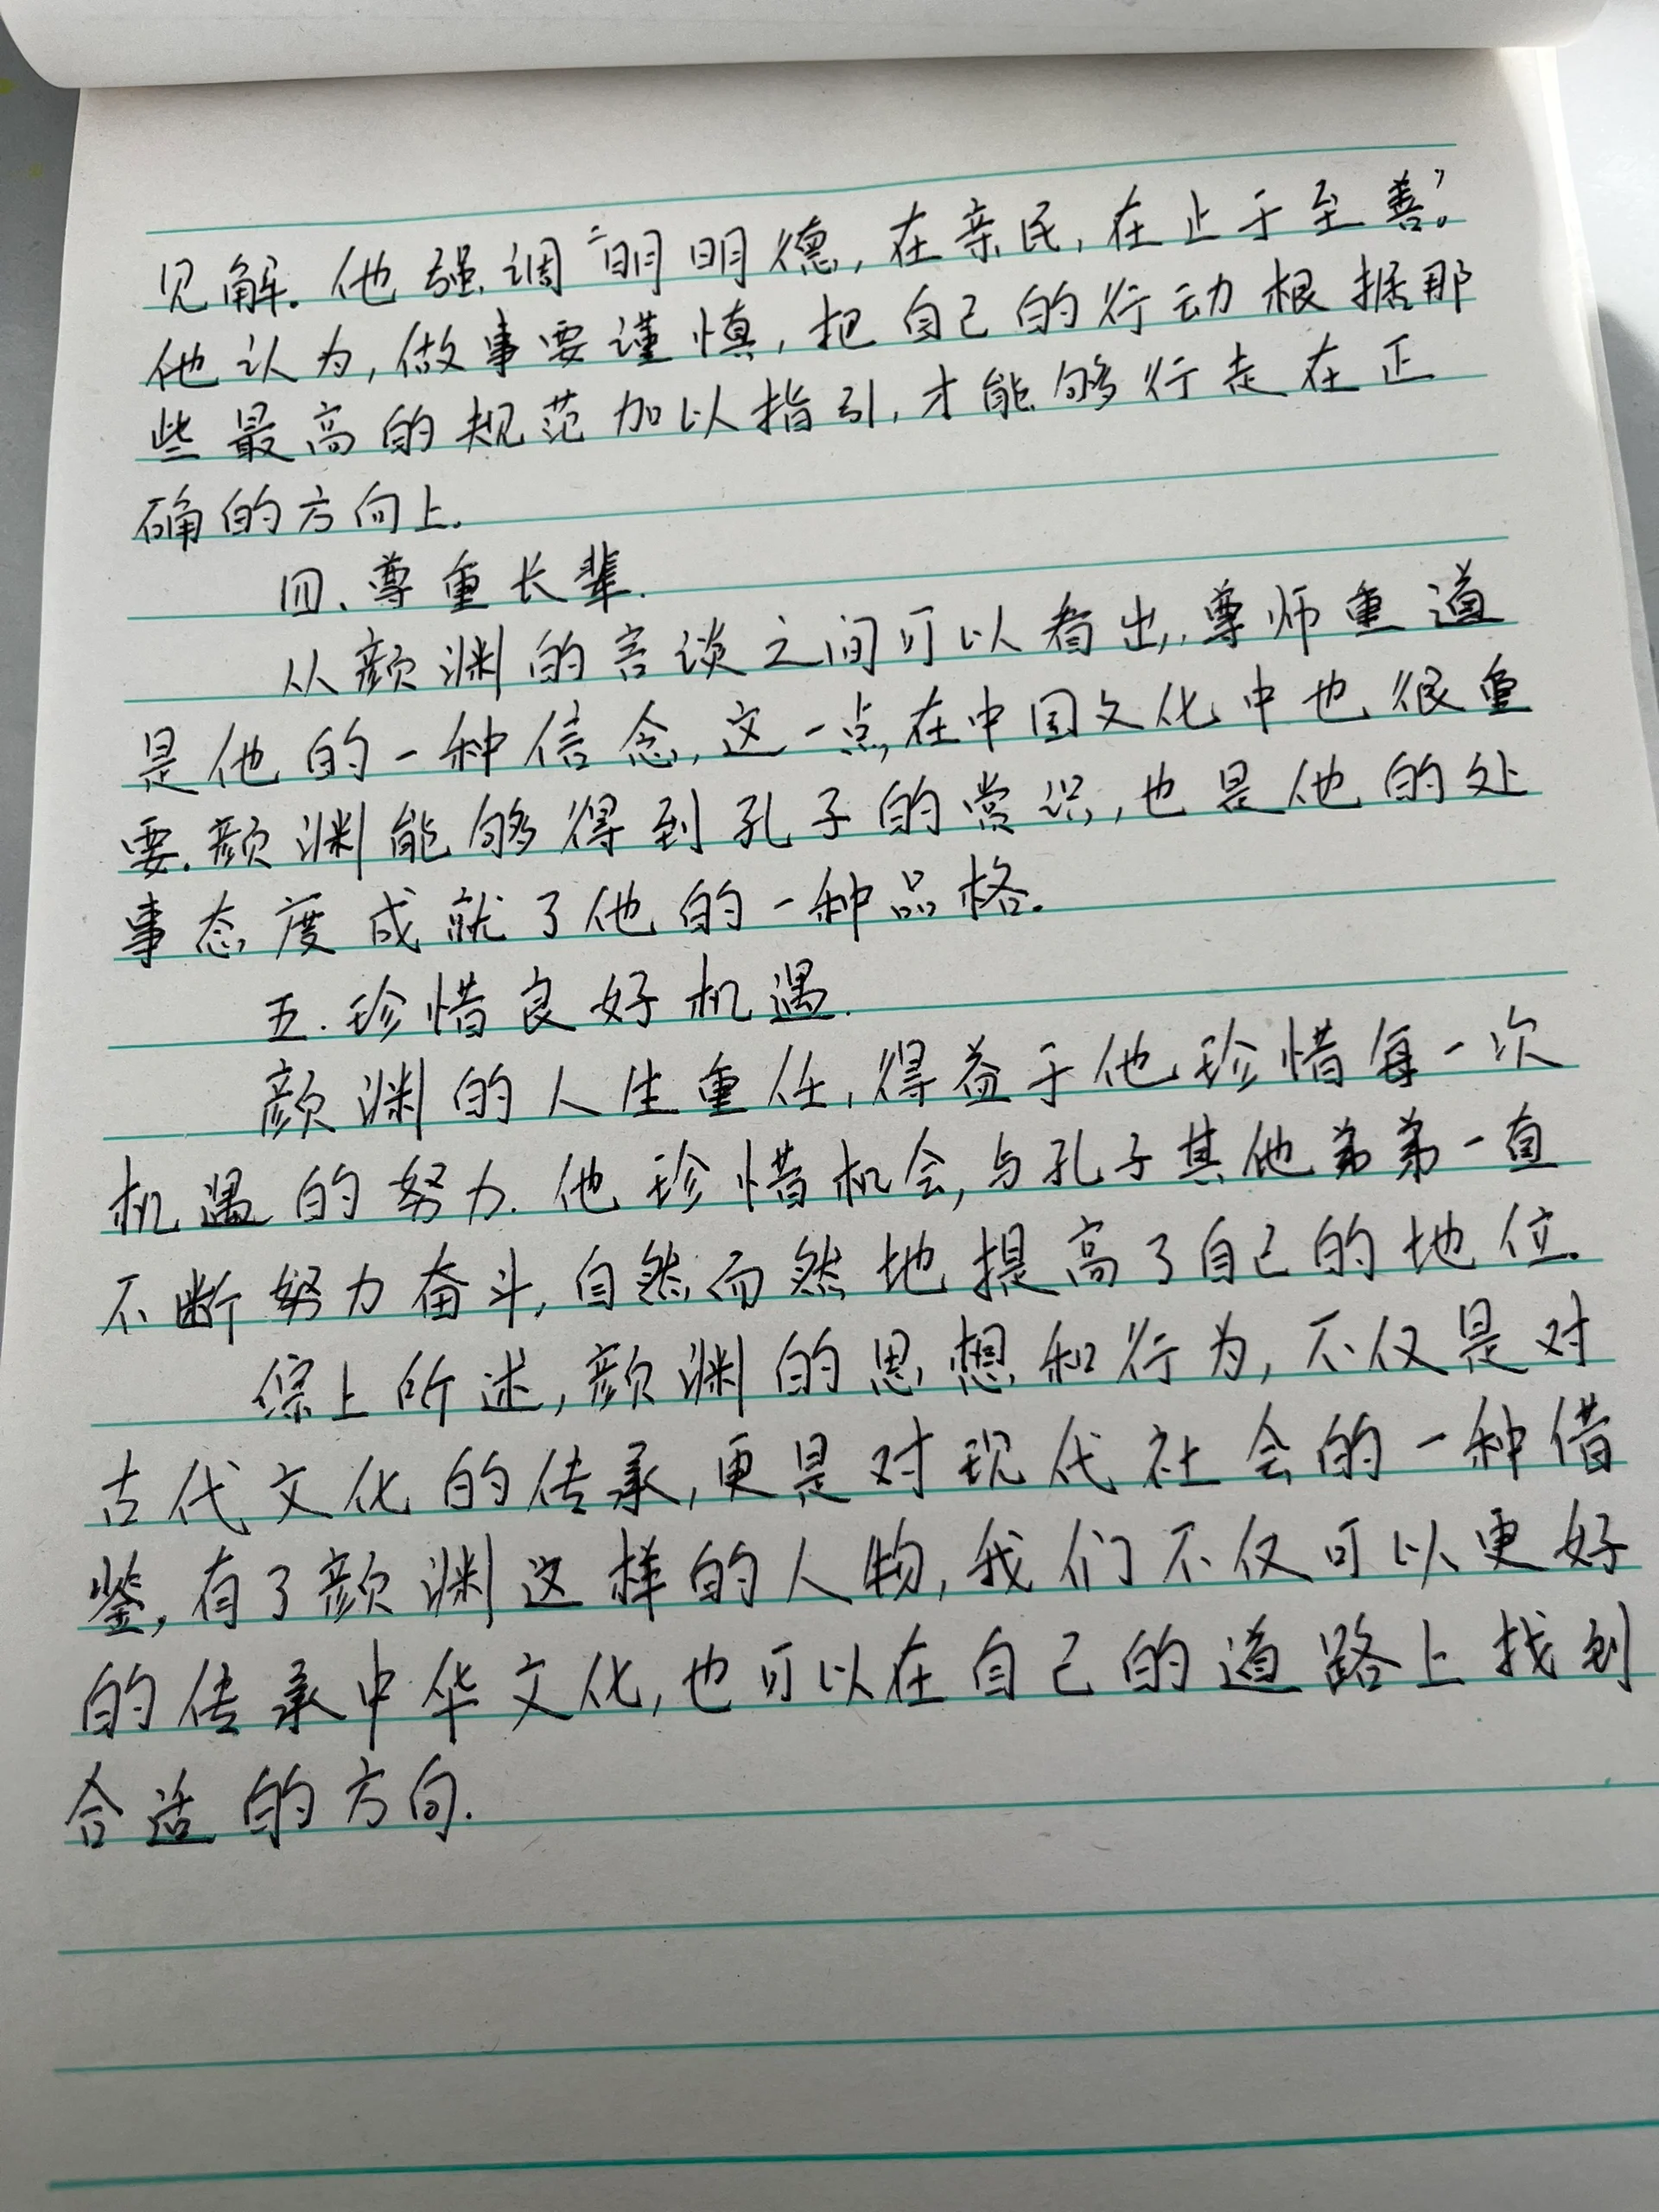 见解.他强调“明明德,在亲民,在止于至善”。
他认为,做事要谨慎,把自己的行动根据那
些最高的规范加以指引,才能够行走在正
确的方向上.
四、尊重长辈.
从颜渊的言谈之间可以看出,尊师重道
是他的一种信念,这一点,在中国文化中也很重
要.颜渊能够得到孔子的赏识,也是他的处
事态度成就了他的一种品格.
五.珍惜良好机遇.
颜渊的人生重任,得益于他珍惜每一次
机遇的努力.他珍惜机会,与孔子其他弟弟一直
不断努力奋斗,自然而然地提高了自己的地位.
综上所述,颜渊的思想和行为,不仅是对
古代文化的传承,更是对现代社会的一种借
鉴,有了颜渊这样的人物,我们不仅可以更好
的传承中华文化,也可以在自己的道路上找到
合适的方向.